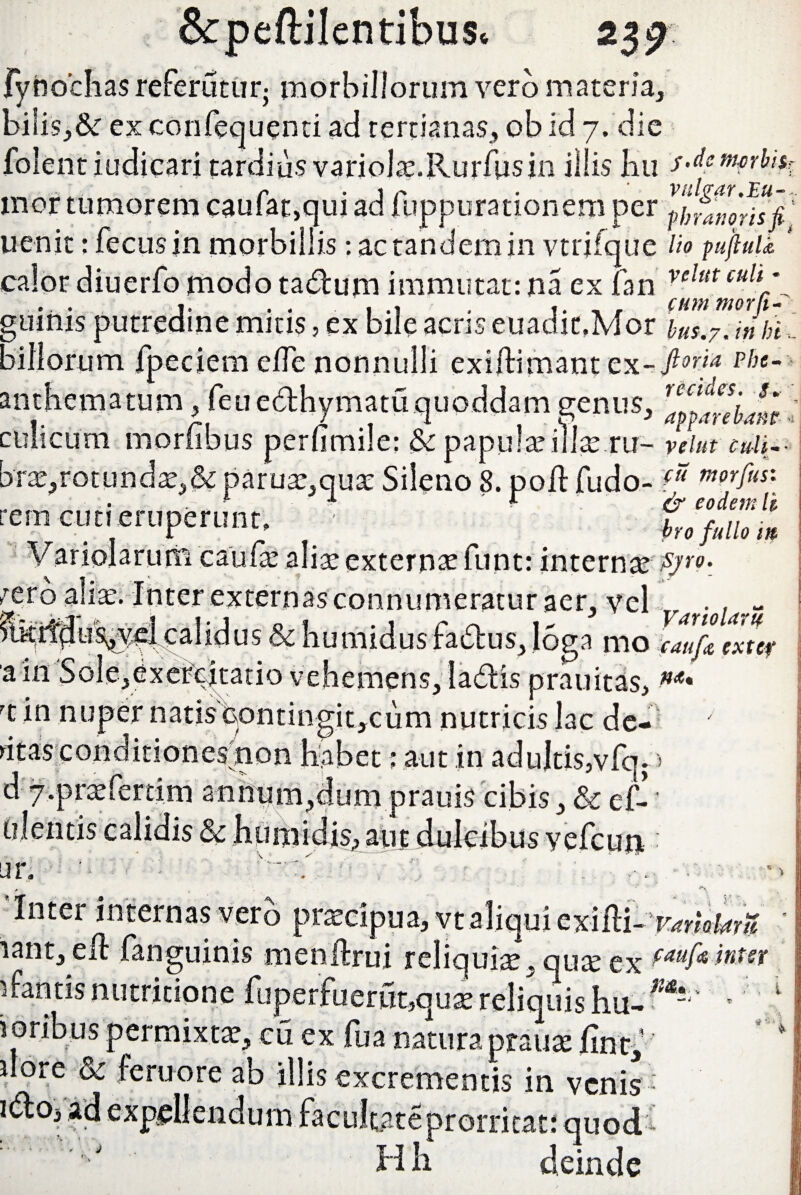 &peſtilentibus. 239
ſynochas referũtur; morbillorum vero materia,
bilis,& ex conſequenti ad tertianas, ob id 7. die
ſolent iudicari tardiùs variolæ.Rurſus in illis hu
mor tumorem cauſat,qui ad ſuppurationem per
uenit: ſecus in morbillis: ac tandem in vtriſque
calor diuerſo modo tactum immutat: nã ex ſan
guinis putredine mitis, ex bile acris euadit.Mor
billorum ſpeciem eſſe nonnulli exiſtimant ex-
anthematum, ſeu ecthymatũ quoddam genus,
culicum morſibus perſimile: & papulæ illæ ru-
bræ,rotundæ,& paruæ,quæ Sileno 8. poſt ſudo-
rem cuti eruperunt.
Variolarum cauſæ aliæ externæ ſunt: internæ
vero aliæ. Inter externas connumeratur aer, vel
calidus & humidus factus, lõga mo
a in Sole,exercitatio vehemens, lactis prauitas,
t in nuper natis contingit,cùm nutricis lac de-
itas conditiones non habet: aut in adultis,vſq;
d 7.præſertim annum,dum prauis cibis, & eſ-
ulentis calidis & humidis, aut dulcibus veſcun
ur.
Inter internas vero præcipua, vt aliqui exiſti-
ant, eſt ſanguinis menſtrui reliquiæ, quæ ex
fantis nutritione ſuperfuerũt,quæ reliquis hu-
oribus permixtæ, cũ ex ſua natura prauæ ſint,
alore & feruore ab illis excrementis in venis
icto, ad expellendum facultatẽ prorritat: quod
Hh deinde
5.de morbis
vulgar.Eu-
phranoris fi
lio puſtulæ
velut culi-
cum morſi-
bus.7. in hi
ſtoria Phe-
recides. 5.
apparebant
velut culi-
cũ morſus:
& eodem li
bro fullo in
Syro.
Variolarũ
cauſæ exter
næ.
Variolarũ
cauſæ inter
næ.